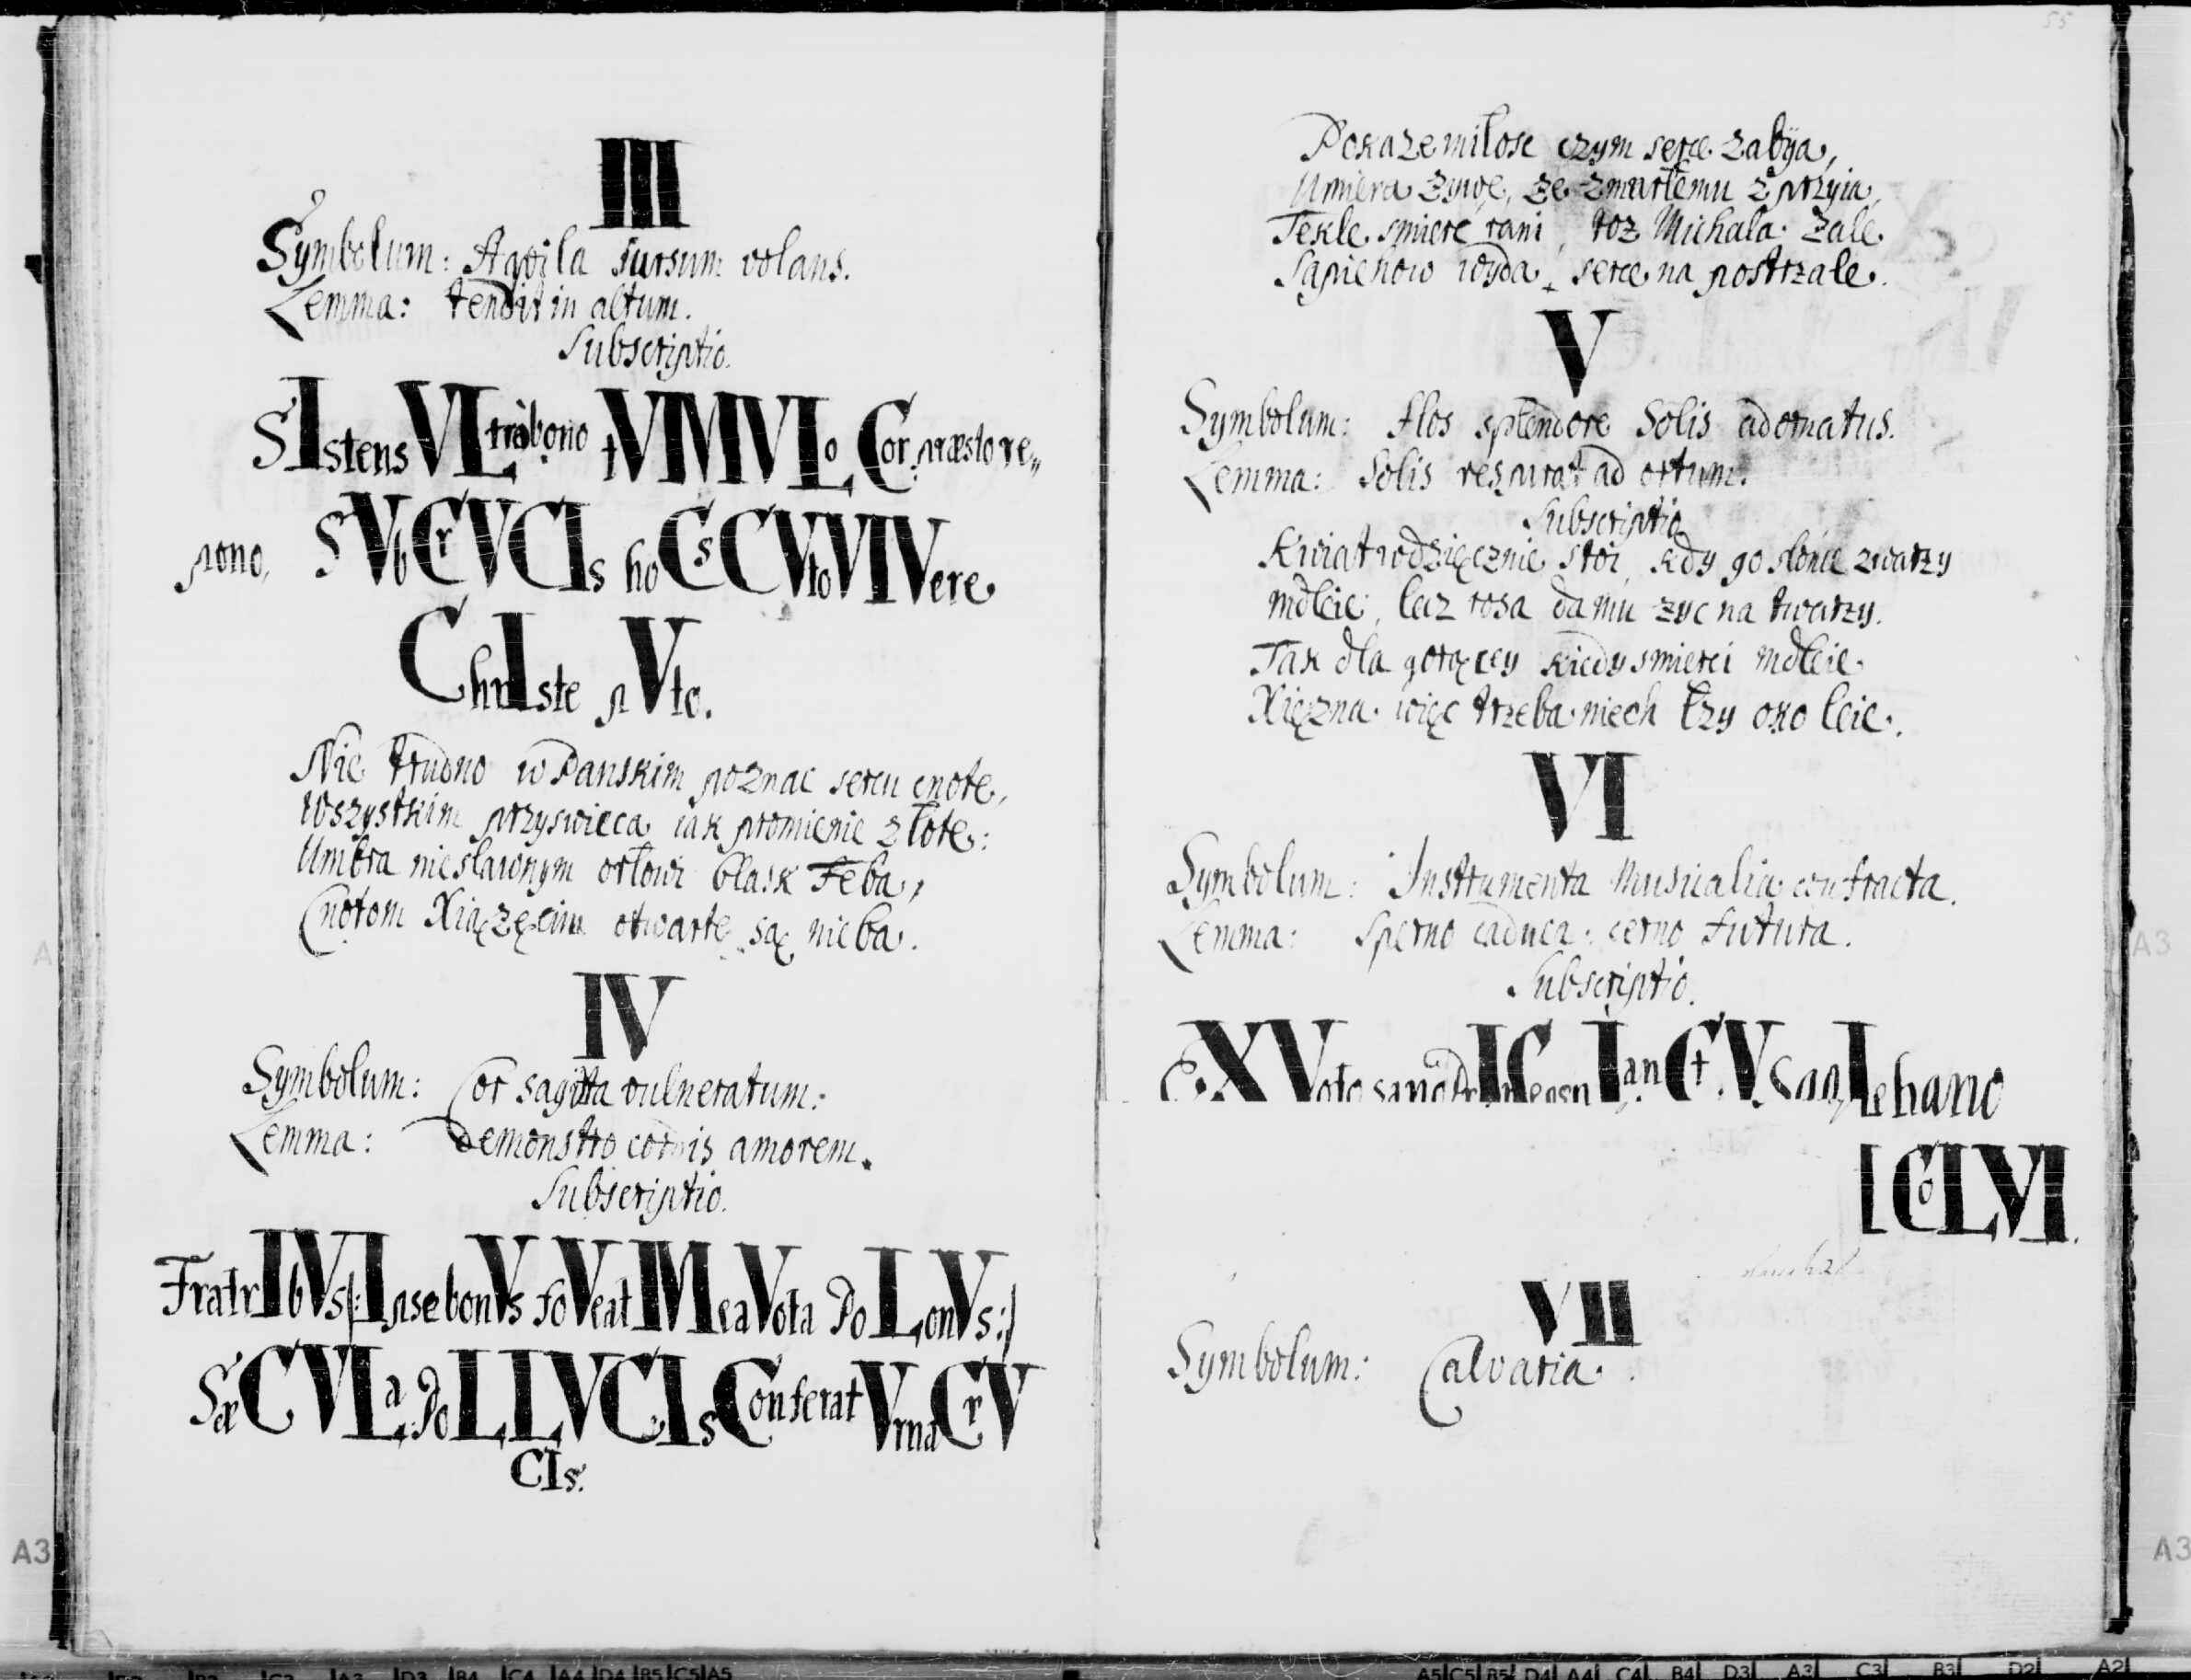 III
Symbolum: Aqvila sursum volans.
Lemma: tendit in altum.
Subscriptio.
SIstens VLtrà bono tVMVLo Cor præsto re„
pono, SVb CrVCIs hoC sCVto VIVere
ChrIste pVto.
Nie trudno w Panskim poznac sercu cnote,
Wszystkim przyswieca iak promienie złote:
Umbra niesławnym orłowi blask Feba,
Cnotom Xiążęcim otwarte są nieba.
IV
Symbolum: Cor sagitta vulneratum:
Lemma: Demonstro cordis amorem.
Subscriptio.
FratrIbVs |: Ipse bonVs foVeat Mea Vota PoLonVs :|
SæCVLa PoLLVCIs Conferat Vrna CrV
CIs.
55
Pokaze milosc czym serce zabija,
Umiera zywe, ze zmarłemu zprzyia,
Tekle smierc rani, toz Michała zale
Sapiehow wyda, serce na postrzale.
V
Symbolum: flos splendore Solis adornatus.
Lemma: Solis respirat ad ortum.
Subscriptio
Kwiat wdzięcznie stoi, kdy go słońce zwarzy
mdleie, lecz rosa da mu zyc na twarzy.
Tak dla gorącey kiedy smierci mdleie
Xięzna więc trzeba niech łzy oko leie.
VI
Symbolum: Instrumenta Musicalia confracta.
Lemma: Sperno caduca: cerno futura.
Subscriptio.
eX Voto sano
[CoLVI.
VII
Symbolum: Calvaria.
A3
A3
A3
A5 C5 B5 D4 A4 C4 B4 D3 A3 C3 B3 D2 A2